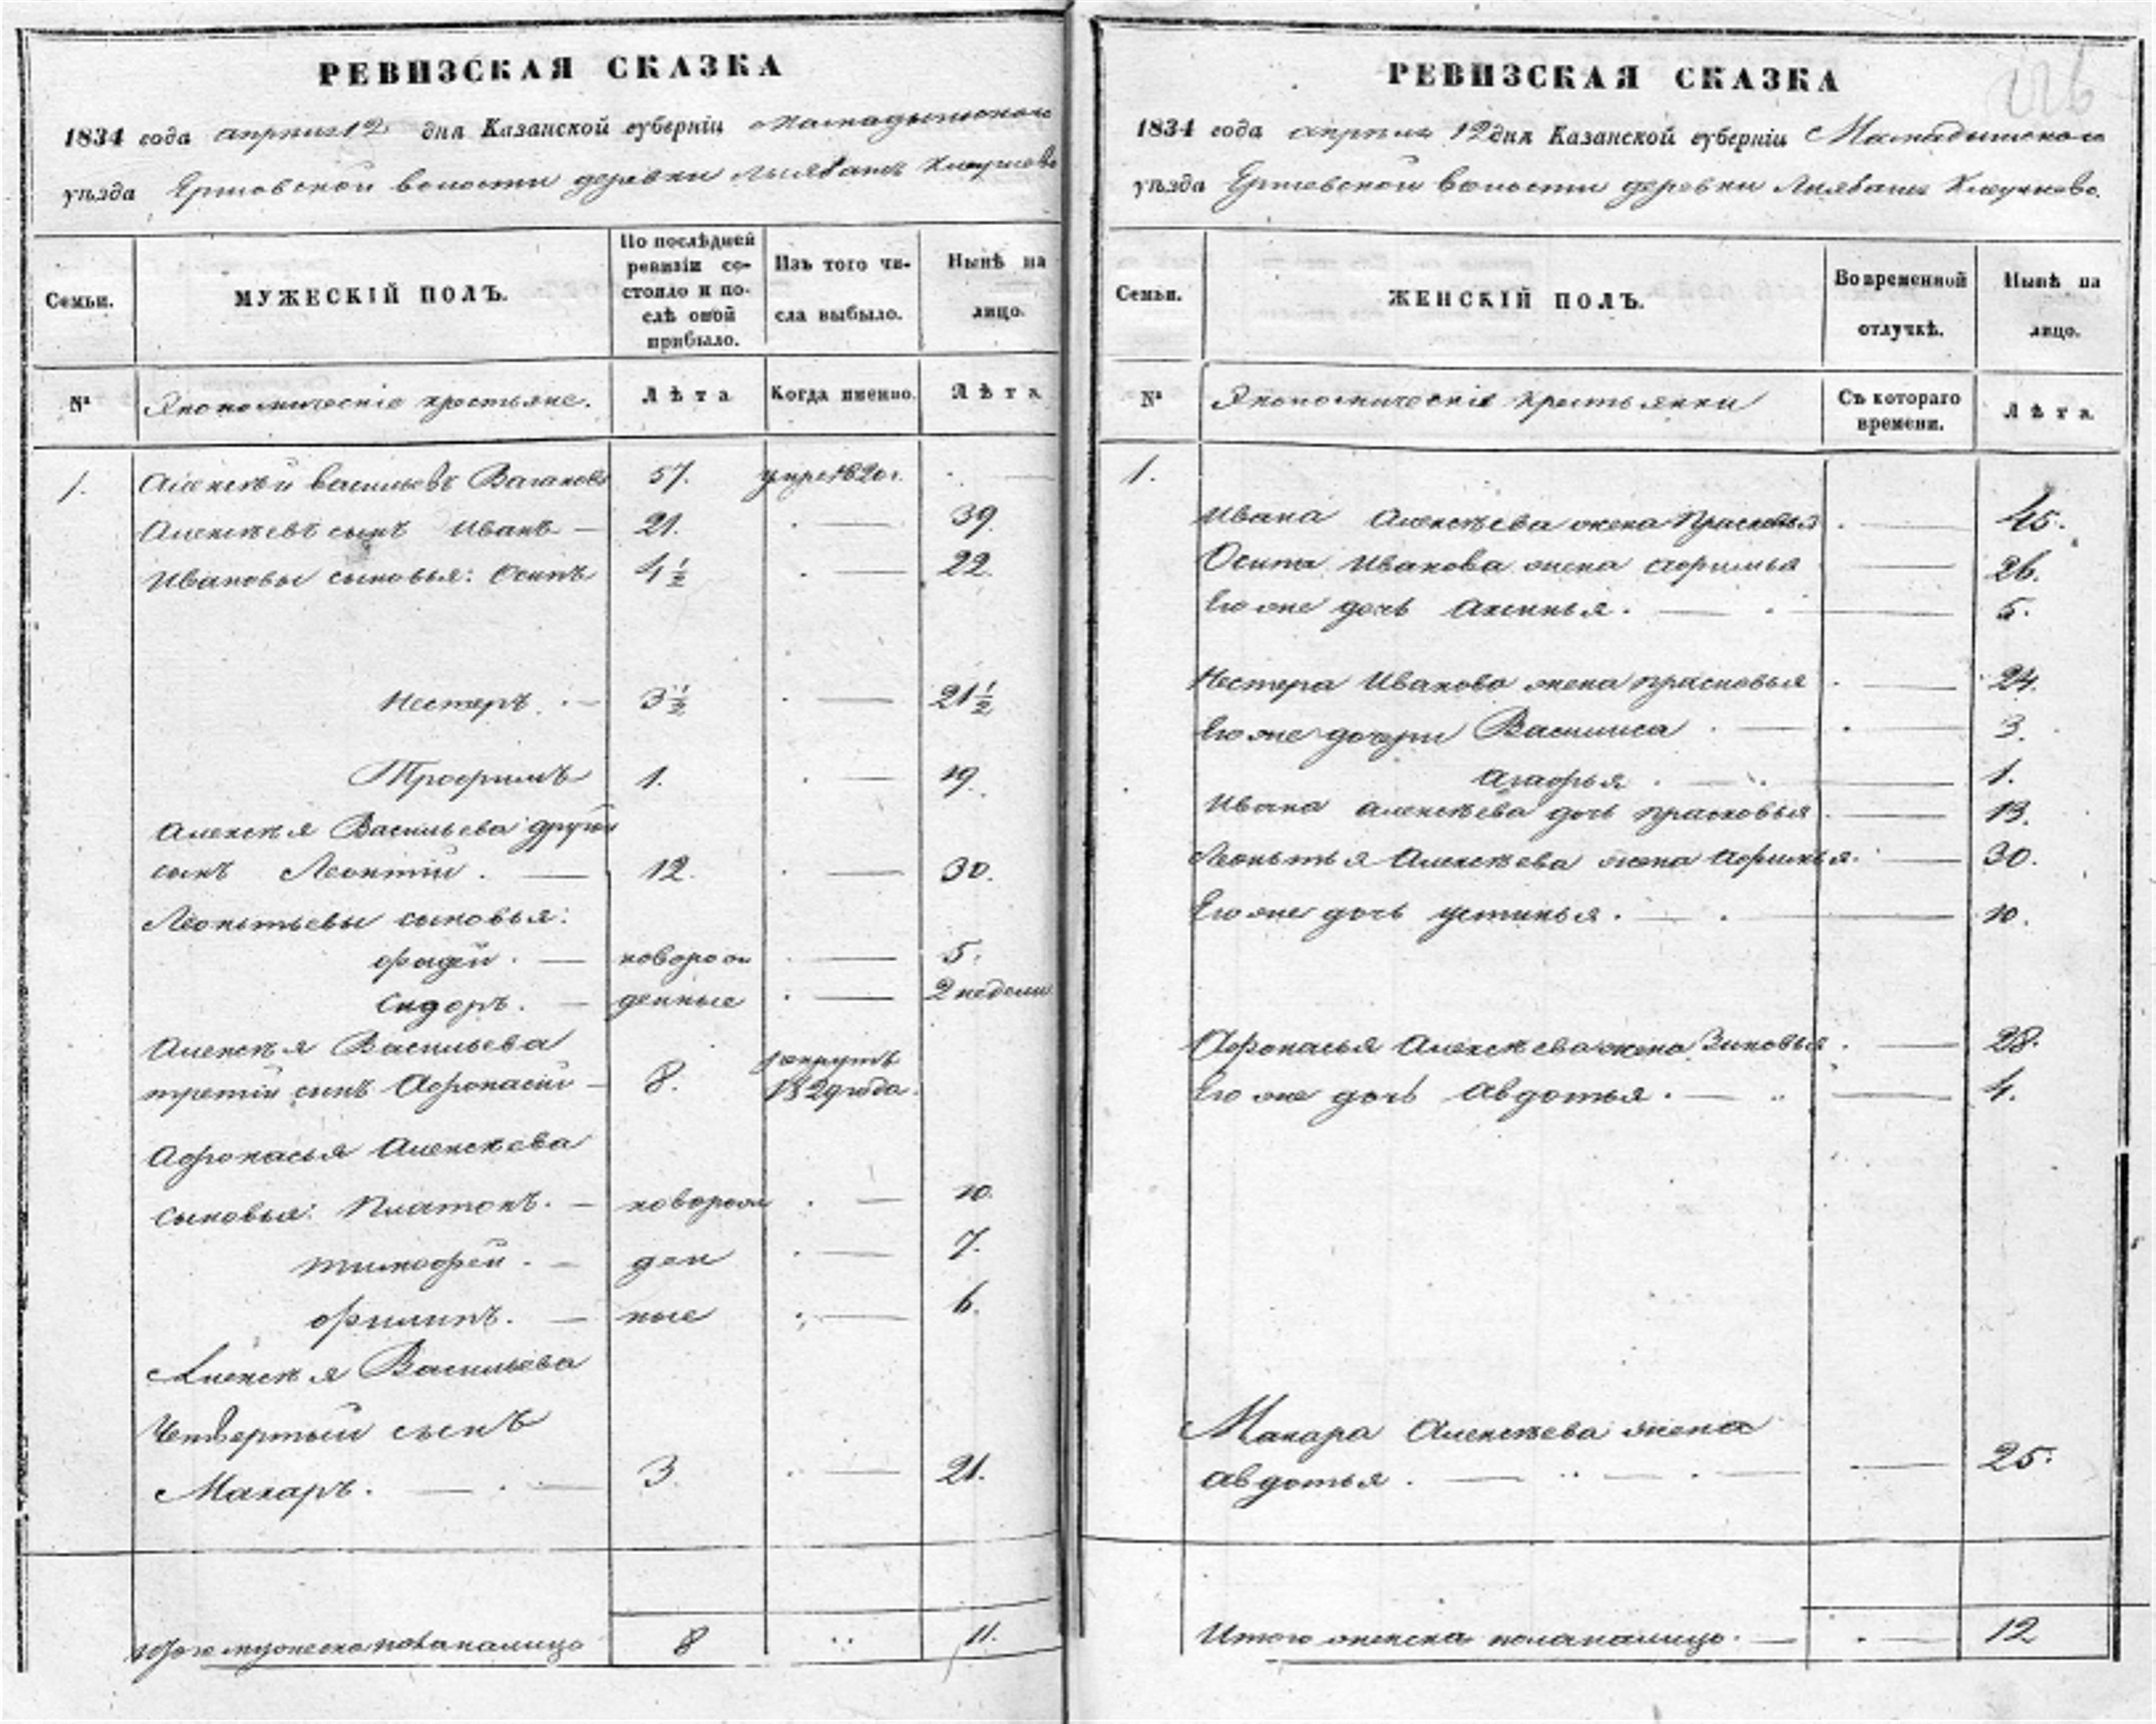 РЕВИЗСКАЯ СКАЗКА
1834 года апреля 12 дня Казанской губерніи Мамадышскаго
уѣзда Ершовской волости деревни Ключево
Семьи.
МУЖЕСКІЙ ПОЛЪ.
По послѣдней ревизіи со-стояло и по-слѣ оной прибыло.
Изъ того чи-сла выбыло.
Нынѣ на лицо.
№
Экономическіе крестьяне.
Лѣта
Когда именно.
Лѣта
1. Алексѣй Васильевъ Вагановъ 57. умре 1820 г.
Алексѣевъ сынъ Иванъ — 21. — 39.
Ивановы сыновья: Осипъ 4½ — 22.
Нестеръ. — 3½ — 21½
Трофимъ 1. — 19.
Алексѣя Васильева другой
сынъ Леонтій. — 12. — 30.
Леонтьевы сыновья:
Фадей. — новорож — 5.
Сидоръ. — денные — 2 недели
Алексѣя Васильева рекрутъ
третій сынъ Афонасій — 8. 1829 года.
Афонасья Алексѣева
сыновья: Платонъ. — новорож — 10.
Тимофей. — ден — 7.
Филипъ. — ные — 6.
Алексѣя Васильева
Четвертый сынъ
Макаръ. — 3. — 21.
Итого мужеска пола на лицо 8 11.
РЕВИЗСКАЯ СКАЗКА
1834 года апреля 12 дня Казанской губерніи Мамадышскаго
уѣзда Ершевской волости деревни Ключево.
Семьи.
ЖЕНСКІЙ ПОЛЪ.
Во временной отлучкѣ.
Нынѣ на лицо.
№
Экономическія крестьянки
Съ котораго времени.
Лѣта
1.
Ивана Алексѣева жена Прасковья. — 45.
Осипа Иванова жена Афимья — 26.
Его же дочь Аксинья. — 5.
Нестера Иванова жена Прасковья. — 24.
Его же дочери Василиса — 3.
Агафья. — 1.
Ивана Алексѣева дочь Прасковья — 13.
Леонтья Алексѣева жена Афимья. — 30.
Его же дочь Устинья. — 10.
Афонасья Алексѣева жена Зиновья. — 28.
Его же дочь Авдотья. — 4.
Макара Алексѣева жена
Авдотья. — 25.
Итого женска пола на лицо. — 12